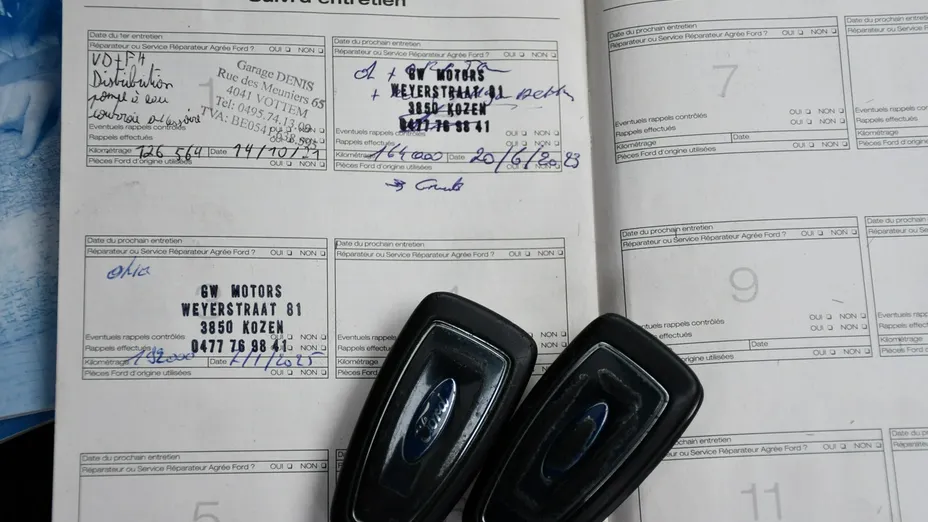 Suivi d'entretien
Date du 1er entretien
Réparateur ou Service Réparateur Agréé Ford ? OUI NON
VD + FH
Distribution
pompe à eau
Garage DENIS
Rue des Meuniers 65
4041 VOTTEM
Tel: 0495.74.13.00
TVA: BE054
Eventuels rappels contrôlés OUI NON
Rappels effectués
Kilométrage 126 564 Date 14/10/21
Pièces Ford d'origine utilisées
Date du prochain entretien
Réparateur ou Service Réparateur Agréé Ford ? OUI NON
GW MOTORS
WEYERSTRAAT 81
3850 KOZEN
0477 76 98 41
Eventuels rappels contrôlés OUI NON
Rappels effectués OUI NON
Kilométrage 164000 Date 20/6/2023
Pièces Ford d'origine utilisées OUI NON
Date du prochain entretien
Réparateur ou Service Réparateur Agréé Ford ? OUI NON
GW MOTORS
WEYERSTRAAT 81
3850 KOZEN
0477 76 98 41
Eventuels rappels contrôlés OUI NON
Rappels effectués OUI NON
Kilométrage Date
Pièces Ford d'origine utilisées OUI NON
Date du prochain entretien
Réparateur ou Service Réparateur Agréé Ford ? OUI NON
Eventuels
Rappels
Kilométrage
Pièces
Ford
Date du prochain entretien
Réparateur ou Service Réparateur Agréé Ford ? OUI NON
5
Date du prochain entretien
Réparateur ou Service Réparateur Agréé Ford ? OUI NON
7
Eventuels rappels contrôlés OUI NON
Rappels effectués OUI NON
Kilométrage Date
Pièces Ford d'origine utilisées OUI NON
Date du prochain entretien
Réparateur ou
Eventuels rappels
Rappels effectués
Kilométrage
Pièces Ford d'origine
Date du prochain entretien
Réparateur ou Service Réparateur Agréé Ford ? OUI NON
9
rappels contrôlés OUI NON
effectués OUI NON
Date
d'origine utilisées OUI NON
Date du prochain
Réparateur ou Service
Eventuels
Rappels
Kilométrage
Pièces Ford
prochain entretien
ou Service Réparateur Agréé Ford ? OUI NON
11
Date du
Réparateur